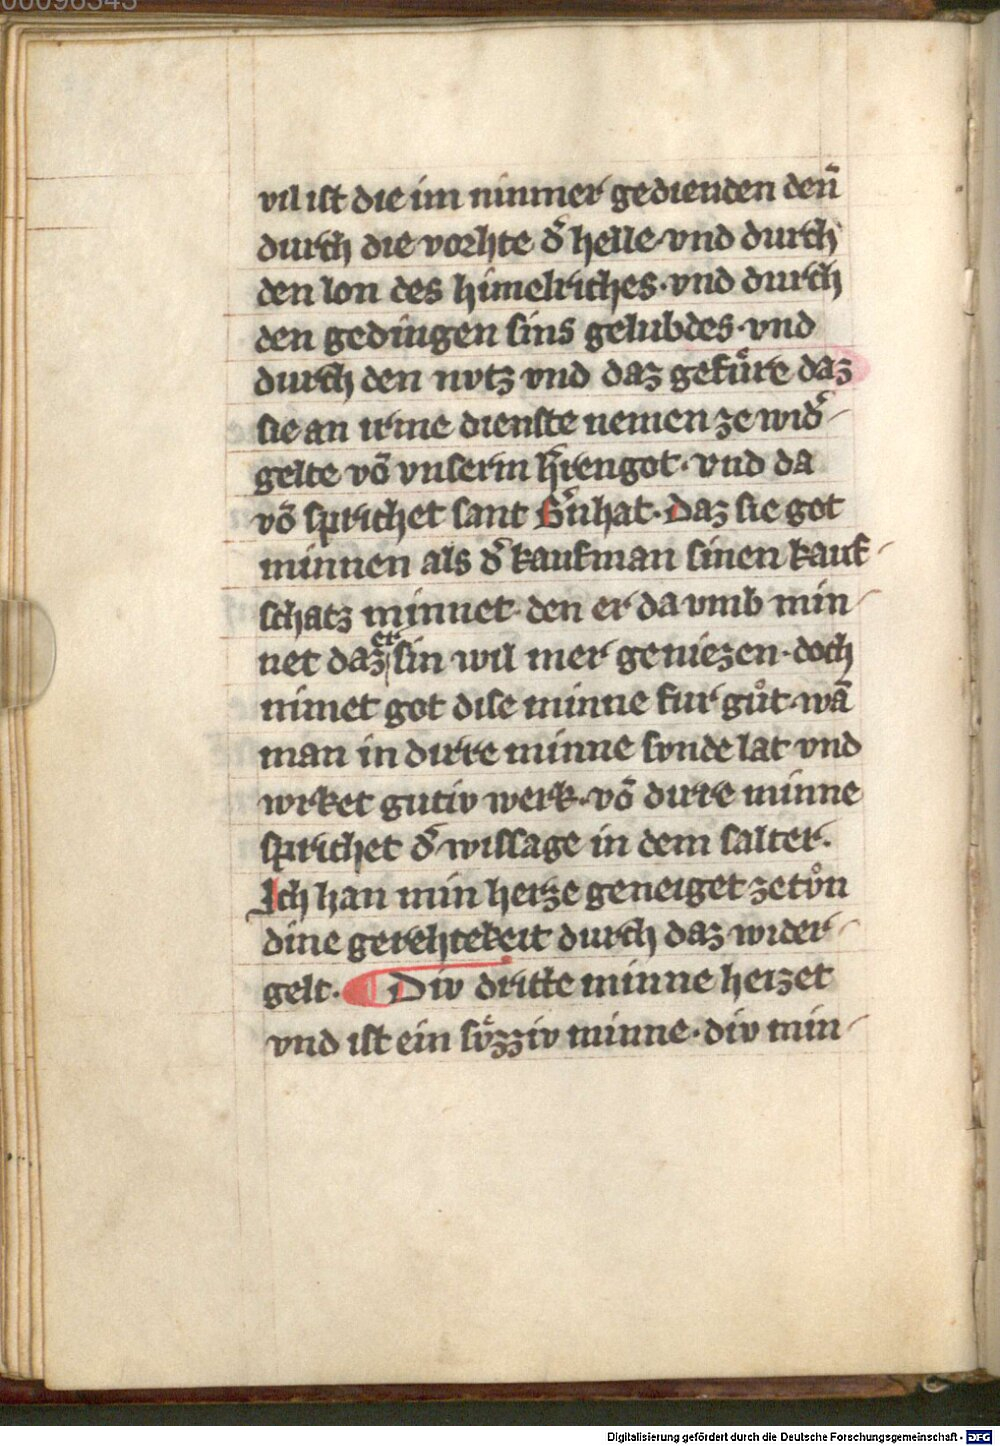 00096343
vil ist die im nimmer gedienden den̄
durch die vorhte d͛ helle·vnd durch
den lon des himelriches·vnd durch
den gedingen sins gelubdes·vnd
durch den nvtz vnd daz gefuͤre daz
sie an irme dienste nemen ze wid͛-
gelte võ vnserm h͛rengot·vnd da
võ sprichet sant B͛nhat·Daz sie got
minnen als d͛ kaufman sinen kauf-
schatz minnet·den er da vmb min-
net daz er sin wil mer geniezen·doch
nimet got dise minne fur guͦt·wã
man in dirre minne svnde lat vnd
wrket gutiv werk·võ dirre minne
sprichet d͛ wissage in dem salter.
Ich han min herze geneiget ze tvͦn
dine gerehtekeit durch daz wider-
gelt. Div dritte minne heizet
vnd ist ein svͤzziv minne·div min-
Digitalisierung gefördert durch die Deutsche Forschungsgemeinschaft - DFG